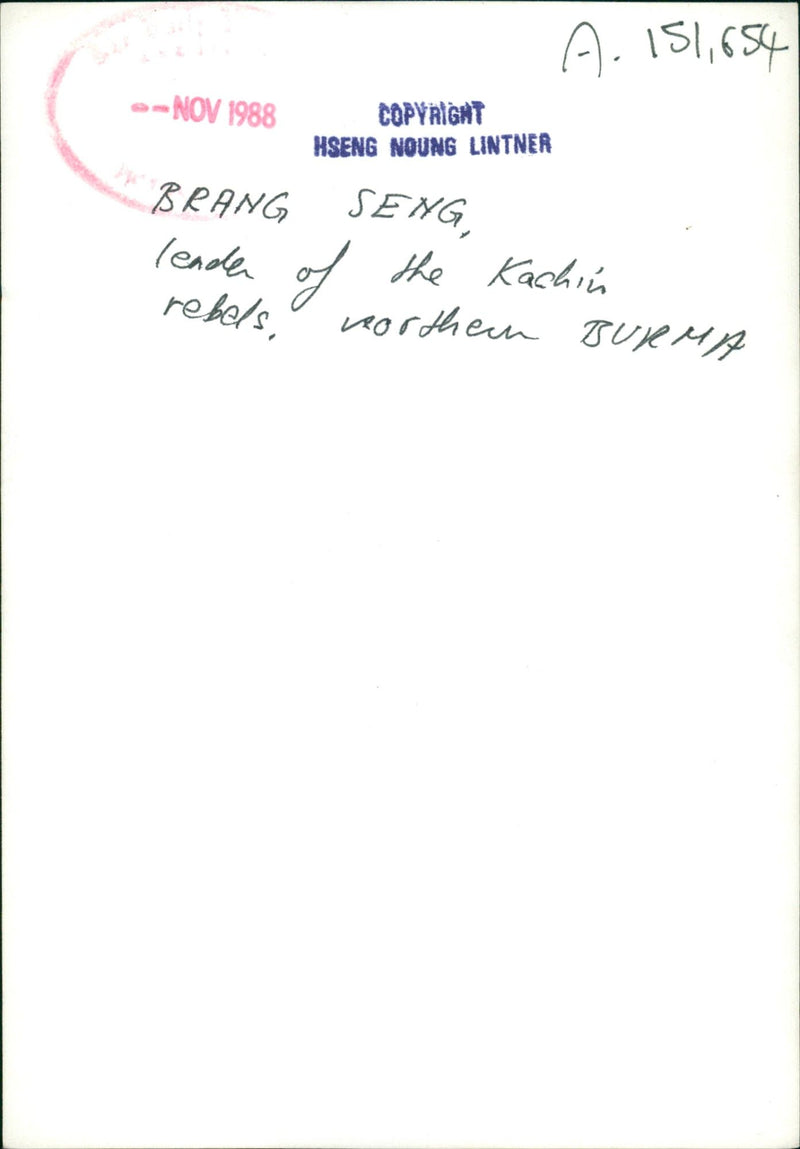 A. 151,654
--NOV 1988
COPYRIGHT
HSENG NOUNG LINTNER
BRANG SENG,
leader of the Kachin
rebels, northern BURMA